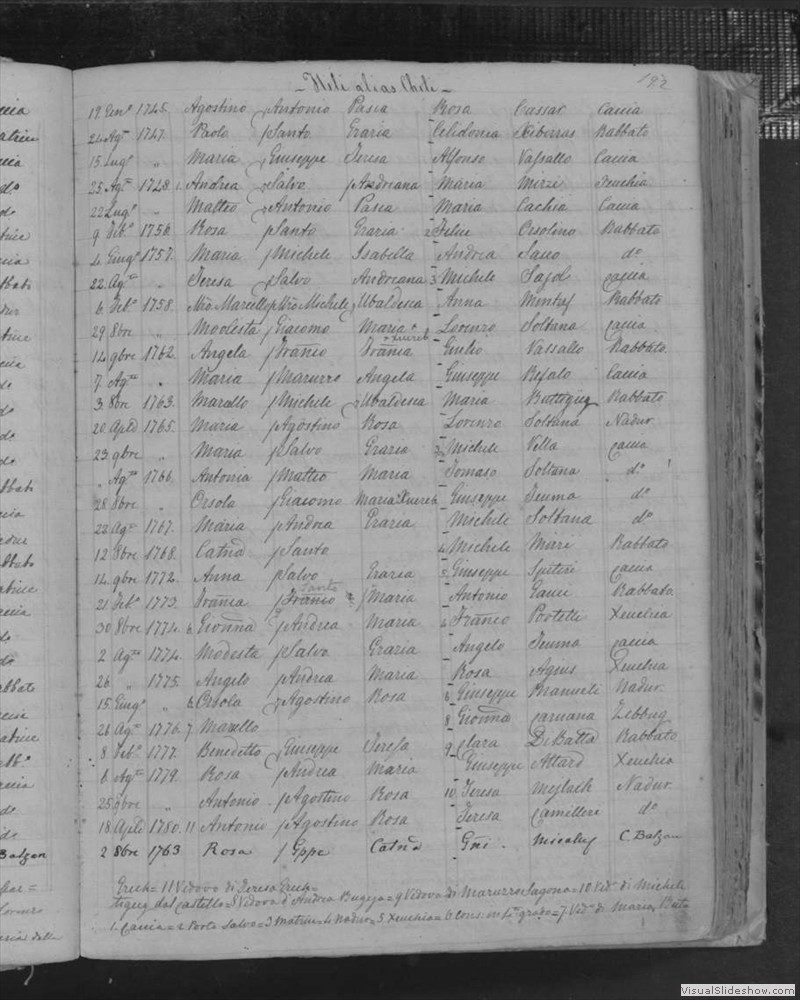 192
Heli alias Cheli
19 Gen.o 1745. Agostino Antonio Pasca Rosa Cassar Caccia
24 Ag.to 1747. Paolo Santo Grazia Celidonia Xiberras Rabbato
15 Lug.o " Maria Giuseppe Teresa Alfonso Vassallo Caccia
25 Ag.to 1748. 1. Andrea Salvo Andreana Maria Mizzi Xeuchia
22 Lug.o " Matteo Antonio Pasca Maria Cachia Caccia
9 Feb.o 1756. Rosa Santo Grazia 2 Felice Orsolino Rabbato
4 Giug.o 1757. Maria Michele Isabella Andrea d.o
22 Ag.to " Teresa Salvo Andreana 3 Michele Caccia
6 Feb.o 1758. Nro Marcello Nro Michele Ubaldesca Anna Rabbato
29 8bre " Modesta Giacomo Maria Lorenzo Soltana Caccia
Xuereb
14 9bre 1762. Angela Franco Franca Giulio Vassallo Rabbato
7 Ag.to " Maria Maruzzo Angela Giuseppe Caccia
3 8bre 1763. Marcello Michele Ubaldesca Maria Buttigieg Rabbato
20 Aple 1765. Maria Agostino Rosa Lorenzo Soltana Nadur
23 9bre " Maria Salvo Grazia Michele Vella Caccia
" Ag.to 1766. Antonia Matteo Maria Tomaso Soltana d.o
28 8bre " Orsola Giacomo Maria Xuereb Giuseppe Teuma d.o
22 Ag.to 1767. Maria Andrea Grazia Michele Soltana d.o
12 8bre 1768. Catna Santo 4 Michele Mizzi Rabbato
14 9bre 1772. Anna Salvo Grazia 5 Giuseppe Spiteri Caccia
Santo
21 Feb.o 1773. Franca Franco Maria Antonio Gauci Rabbato
30 8bre 1774. 6 Gionna Andrea Maria 6 Franco Portelli Xeuchia
2 Ag.to 1774. Modesta Salvo Grazia Angelo Teuma Caccia
26 " 1775. Angelo Andrea Maria Rosa Agius Xeuchia
15 Giug.o " 6 Orsola Agostino Rosa 6 Giuseppe Nadur
26 Ag.to 1776. 7 Marcello 8 Gionna Caruana Zebbug
8 Feb.o 1777. Benedetto Giuseppe Teresa 9 Clara DeBatta Rabbato
6 Ag.to 1779. Rosa Andrea Maria Giuseppe Attard Xeuchia
25 9bre " Antonio Agostino Rosa 10 Teresa Meylach Nadur
18 Aple 1780. 11 Antonio Agostino Rosa Teresa Camilleri d.o
2 8bre 1763 Rosa Gppe Catna Gni. Micallef C. Balzan
Grech = 11 Vedovo di Teresa Grech =
dal Castello = 8 Vedova d'Andrea Bugeja = 9 Vedova di Maruzzo Sagona = 10 Ved.a di Michele
1. Caccia = 2 Porto Salvo = 3 Matrice 4 Nadur = 5 Xeuchia = 6 Cons. in 4.to grado = 7 Ved.o di Maria